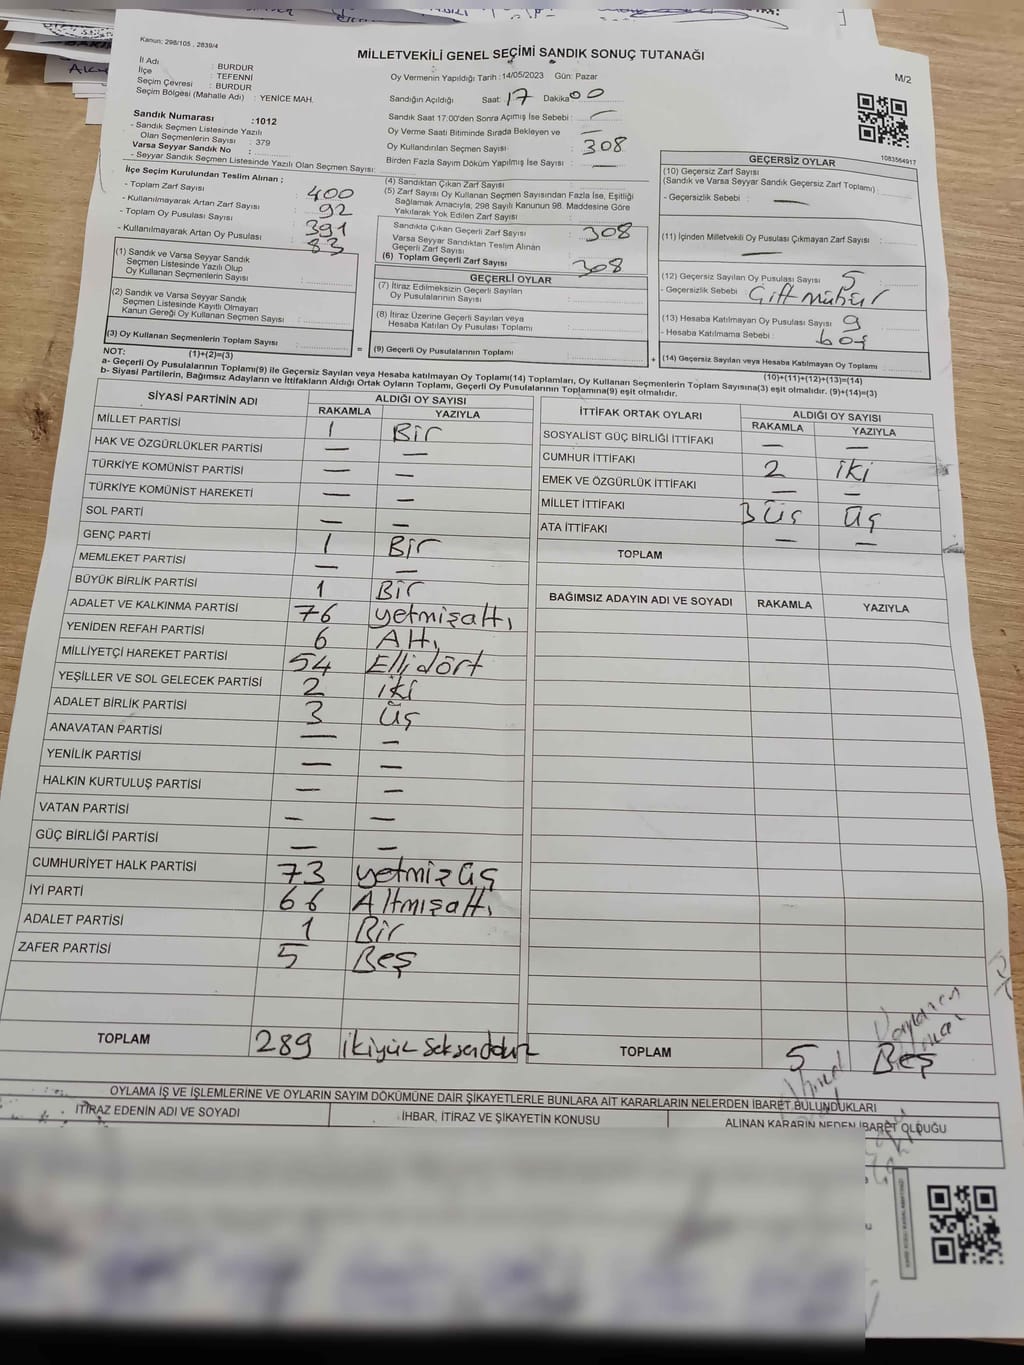 Kanun; 298/105 , 2839/4
MİLLETVEKİLİ GENEL SEÇİMİ SANDIK SONUÇ TUTANAĞI
M/2
İl Adı : BURDUR
İlçe : TEFENNİ
Seçim Çevresi : BURDUR
Seçim Bölgesi (Mahalle Adı) : YENİCE MAH.
Sandık Numarası :1012
- Sandık Seçmen Listesinde Yazılı
Olan Seçmenlerin Sayısı : 379
Varsa Seyyar Sandık No :
- Seyyar Sandık Seçmen Listesinde Yazılı Olan Seçmen Sayısı:
Oy Vermenin Yapıldığı Tarih : 14/05/2023 Gün: Pazar
Sandığın Açıldığı Saat: 17 Dakika 00
Sandık Saat 17:00'den Sonra Açımış İse Sebebi :
Oy Verme Saati Bitiminde Sırada Bekleyen ve
Oy Kullandırılan Seçmen Sayısı : 308
Birden Fazla Sayım Döküm Yapılmış İse Sayısı : —
1083564917
İlçe Seçim Kurulundan Teslim Alınan ;
- Toplam Zarf Sayısı : 400
- Kullanılmayarak Artan Zarf Sayısı : 92
- Toplam Oy Pusulası Sayısı : 391
- Kullanılmayarak Artan Oy Pusulası : 83
(1) Sandık ve Varsa Seyyar Sandık
Seçmen Listesinde Yazılı Olup
Oy Kullanan Seçmenlerin Sayısı :
(2) Sandık ve Varsa Seyyar Sandık
Seçmen Listesinde Kayıtlı Olmayan
Kanun Gereği Oy Kullanan Seçmen Sayısı :
(3) Oy Kullanan Seçmenlerin Toplam Sayısı :
(1)+(2)=(3)
(4) Sandıktan Çıkan Zarf Sayısı :
(5) Zarf Sayısı Oy Kullanan Seçmen Sayısından Fazla İse, Eşitliği
Sağlamak Amacıyla, 298 Sayılı Kanunun 98. Maddesine Göre
Yakılarak Yok Edilen Zarf Sayısı :
Sandıkta Çıkan Geçerli Zarf Sayısı : 308
Varsa Seyyar Sandıktan Teslim Alınan
Geçerli Zarf Sayısı :
(6) Toplam Geçerli Zarf Sayısı : 308
GEÇERLİ OYLAR
(7) İtiraz Edilmeksizin Geçerli Sayılan
Oy Pusulalarının Sayısı :
(8) İtiraz Üzerine Geçerli Sayılan veya
Hesaba Katılan Oy Pusulası Toplamı :
= (9) Geçerli Oy Pusulalarının Toplamı :
GEÇERSİZ OYLAR
(10) Geçersiz Zarf Sayısı
(Sandık ve Varsa Seyyar Sandık Geçersiz Zarf Toplamı) :
- Geçersizlik Sebebi : —
(11) İçinden Milletvekili Oy Pusulası Çıkmayan Zarf Sayısı :
—
(12) Geçersiz Sayılan Oy Pusulası Sayısı : 5
- Geçersizlik Sebebi : Çift mühür
(13) Hesaba Katılmayan Oy Pusulası Sayısı : 9
- Hesaba Katılmama Sebebi : boş
+ (14) Geçersiz Sayılan veya Hesaba Katılmayan Oy Toplamı :
(10)+(11)+(12)+(13)=(14)
NOT:
a- Geçerli Oy Pusulalarının Toplamı(9) ile Geçersiz Sayılan veya Hesaba katılmayan Oy Toplamı(14) Toplamları, Oy Kullanan Seçmenlerin Toplam Sayısına(3) eşit olmalıdır. (9)+(14)=(3)
b- Siyasi Partilerin, Bağımsız Adayların ve İttifakların Aldığı Ortak Oyların Toplamı, Geçerli Oy Pusulalarının Toplamına(9) eşit olmalıdır.
SİYASİ PARTİNİN ADI ALDIĞI OY SAYISI
RAKAMLA YAZIYLA
MİLLET PARTİSİ 1 Bir
HAK VE ÖZGÜRLÜKLER PARTİSİ — —
TÜRKİYE KOMÜNİST PARTİSİ — —
TÜRKİYE KOMÜNİST HAREKETİ — —
SOL PARTİ — —
GENÇ PARTİ 1 Bir
MEMLEKET PARTİSİ — —
BÜYÜK BİRLİK PARTİSİ 1 Bir
ADALET VE KALKINMA PARTİSİ 76 yetmişaltı
YENİDEN REFAH PARTİSİ 6 Altı
MİLLİYETÇİ HAREKET PARTİSİ 54 Ellidört
YEŞİLLER VE SOL GELECEK PARTİSİ 2 iki
ADALET BİRLİK PARTİSİ 3 üç
ANAVATAN PARTİSİ — —
YENİLİK PARTİSİ — —
HALKIN KURTULUŞ PARTİSİ — —
VATAN PARTİSİ — —
GÜÇ BİRLİĞİ PARTİSİ — —
CUMHURİYET HALK PARTİSİ 73 yetmiz üç
İYİ PARTİ 66 Altmışaltı
ADALET PARTİSİ 1 Bir
ZAFER PARTİSİ 5 Beş
TOPLAM 289 ikiyüz seksendokuz
İTTİFAK ORTAK OYLARI ALDIĞI OY SAYISI
RAKAMLA YAZIYLA
SOSYALİST GÜÇ BİRLİĞİ İTTİFAKI — —
CUMHUR İTTİFAKI 2 iki
EMEK VE ÖZGÜRLÜK İTTİFAKI — —
MİLLET İTTİFAKI 3 üç üç
ATA İTTİFAKI — —
TOPLAM
BAĞIMSIZ ADAYIN ADI VE SOYADI RAKAMLA YAZIYLA
TOPLAM 5 Beş
OYLAMA İŞ VE İŞLEMLERİNE VE OYLARIN SAYIM DÖKÜMÜNE DAİR ŞİKAYETLERLE BUNLARA AİT KARARLARIN NELERDEN İBARET BULUNDUKLARI
İTİRAZ EDENİN ADI VE SOYADI İHBAR, İTİRAZ VE ŞİKAYETİN KONUSU ALINAN KARARIN NEDEN İBARET OLDUĞU